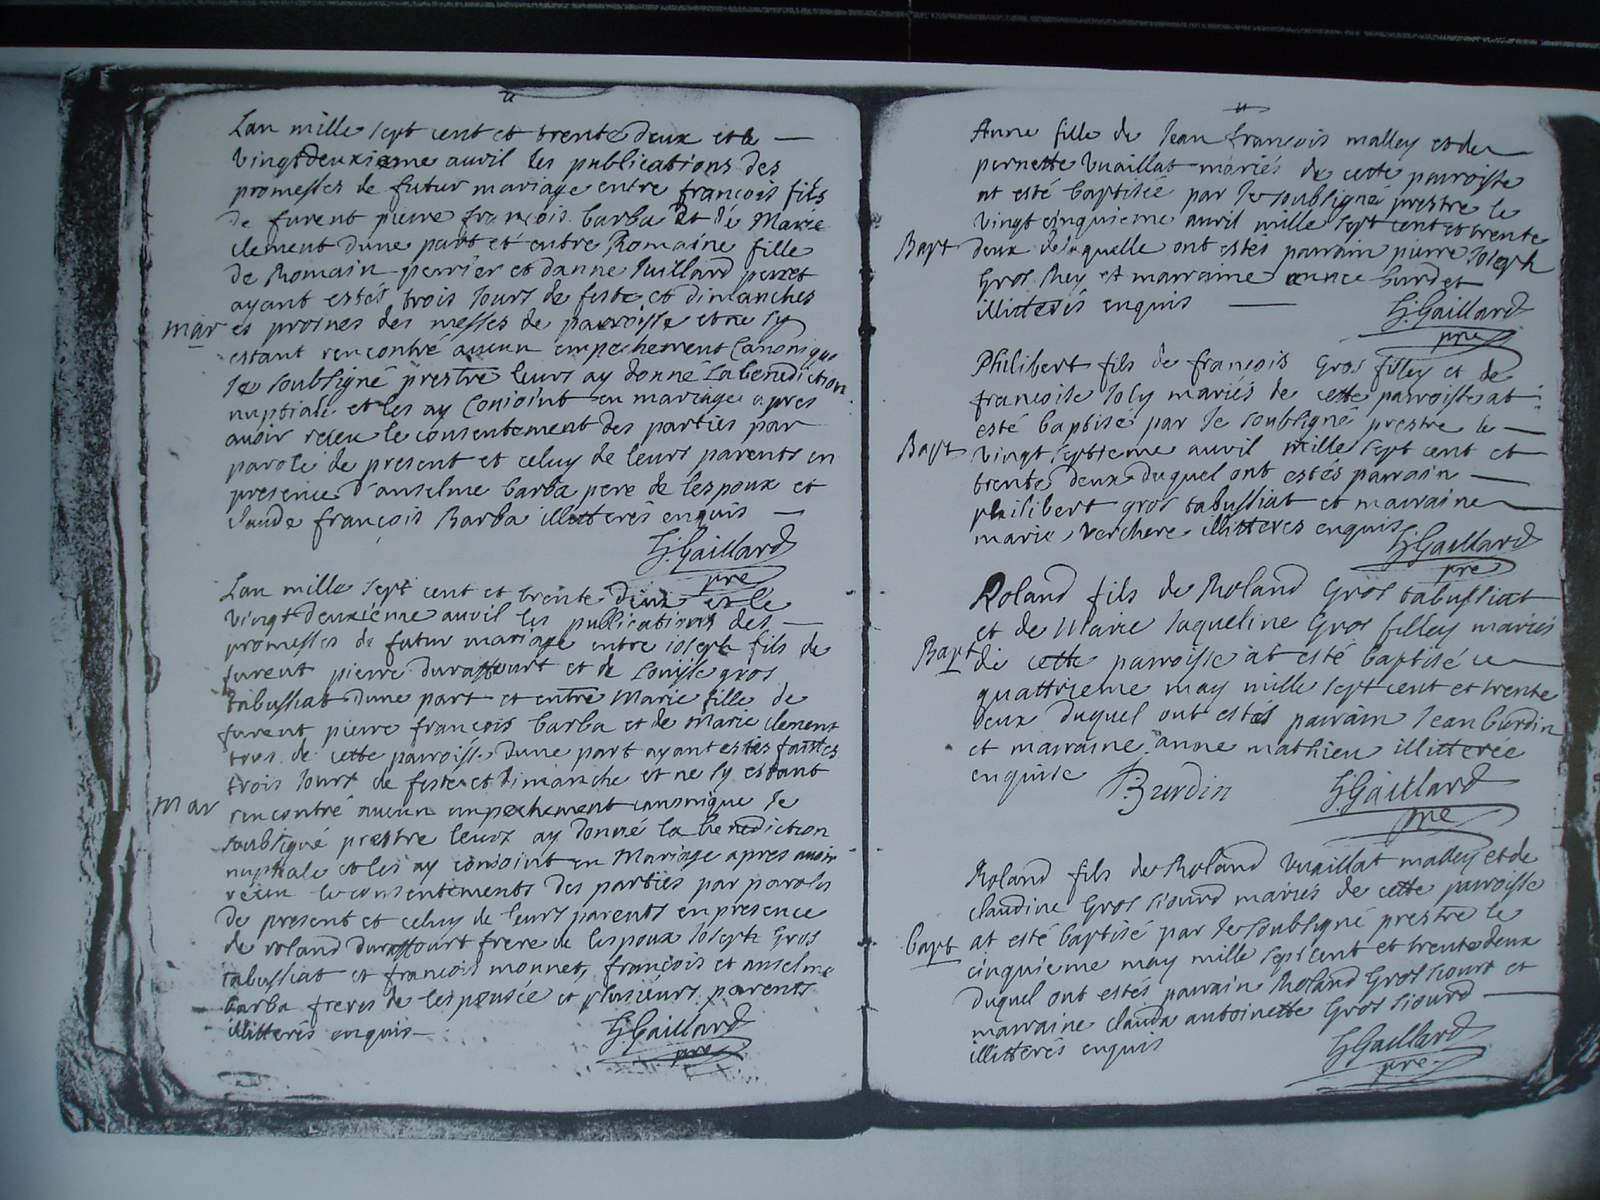 Lan mille sept cent et trente deux et le
vingtdeuxieme avvil les publications des
promesses de futur mariage entre françois fils
de furent pierre françois barba et de Marie
clement dune part et entre Romaine fille
de Romain perrier et danne Vuillard perret
ayant estés trois Jours de feste et dimanches
mar es prosnes des messes de parroisse et ne sy
estant rencontré aucun empechement Canonique
Je soubsigné prestre leurs ay donne La benediction
nuptiale et les ay Conjoint en mariage apres
avoir receu le consentement des parties par
parole de present et celuy de leurs parents en
presence d'anselme barba pere de lespoux et
claude françois Barba illitterés enquis
h: Gaillard
pre
Lan mille sept cent et trente deux et le
vingt deuxiéme avvil les publications des
promesses de futur mariage entre ioseph fils de
furent pierre duraffourt et de Louise gros
tabussiat dune part et entre Marie fille de
furent pierre françois barba et de Marie clement
tous de cette parroisse dune part ayant estes faittes
trois Jours de feste et dimanche et ne sy estant
mar rencontré aucun empechement canonique Je
soubsigné prestre leurs ay donné la benediction
nuptiale et les ay conjoint en Mariage apres avoir
receu le consentements des parties par paroles
de present et celuy de leurs parents en presence
de roland duraffourt frere de lespoux Joseph Gros
tabussiat et françois monnet, françois et anselme
barba freres de lespousée et plusieurs parents
illitterés enquis
h: Gaillard
pre
Anne fille de Jean françois malley et de
pernette Vuaillat mariés de cette parroisse
at esté baptisée par Je soubsigné prestre le
vingt cinquieme avril mille sept cent et trente
Bapt deux de laquelle ont estes parrain pierre Joseph
Gros Rey et marraine anne burdet
illitterés enquis
h: Gaillard
pre
Philibert fils de françois Gros filley et de
françoise Joly mariés de cette parroisse at
esté baptisé par Je soubsigné prestre le
Bapt vingt septieme avvil mille sept cent et
trente deux duquel ont estés parrain
philibert gros tabussiat et marraine
marie verchere illitteres enquis
h: Gaillard
pre
Roland fils de Roland Gros tabussiat
et de Marie Jaqueline Gros filley mariés
Bapt de cette parroisse at esté baptisé ce
quattrieme may mille sept cent et trente
deux duquel ont estés parrain Jean burdin
et marraine anne mathieu illitterée
enquise
J: Burdin
h: Gaillard
pre
Roland fils de Roland Vuaillat malley et de
claudine Gros siourd mariés de cette parroisse
bapt at esté baptisé par Je soubsigné prestre le
cinquieme may mille sept cent et trente deux
duquel ont estés parrain Roland Gros siourt et
marraine claude antoinette Gros siourd
illitterés enquis
h: Gaillard
pre